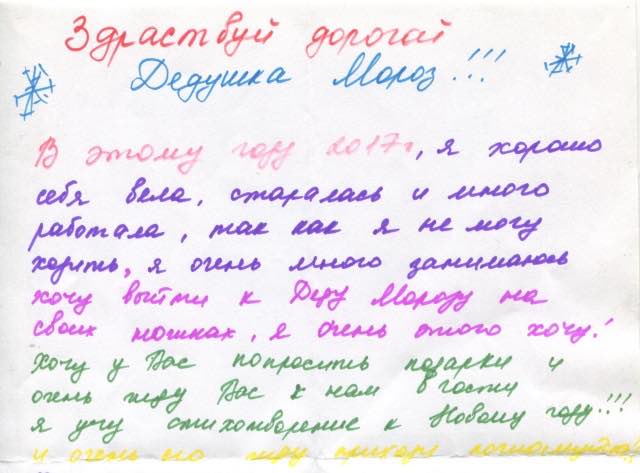 Здраствуй дорогай
Дедушка Мороз!!!
В этому году 2017г, я хорошо
себя вела, старалась и много
работала, так как я не могу
ходить, я очень много занимаюсь
хочу выйти к Деду Морозу на
своих ношках, я очень этого хочу!
Хочу у Вас попросить подарки и
очень жду Вас к нам в гости
я учу стихотворение к Новому году!!!
и очень его жду